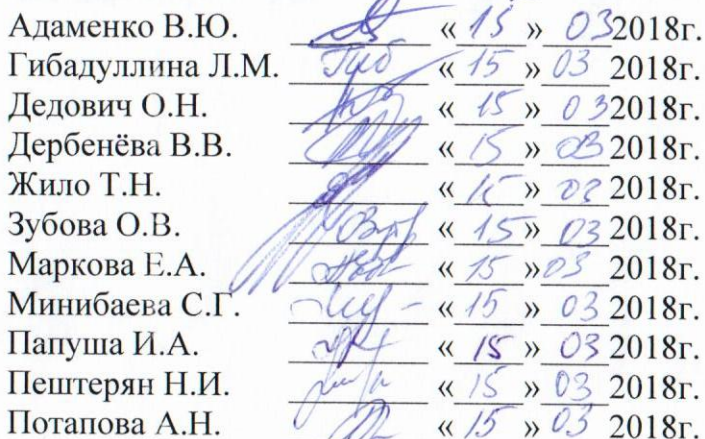 Адаменко В.Ю. « 15 » 03 2018г.
Гибадуллина Л.М. Гиб « 15 » 03 2018г.
Дедович О.Н. « 15 » 03 2018г.
Дербенёва В.В. « 15 » 03 2018г.
Жило Т.Н. « 15 » 03 2018г.
Зубова О.В. « 15 » 03 2018г.
Маркова Е.А. « 15 » 03 2018г.
Минибаева С.Г. « 15 » 03 2018г.
Папуша И.А. « 15 » 03 2018г.
Пештерян Н.И. « 15 » 03 2018г.
Потапова А.Н. « 15 » 03 2018г.